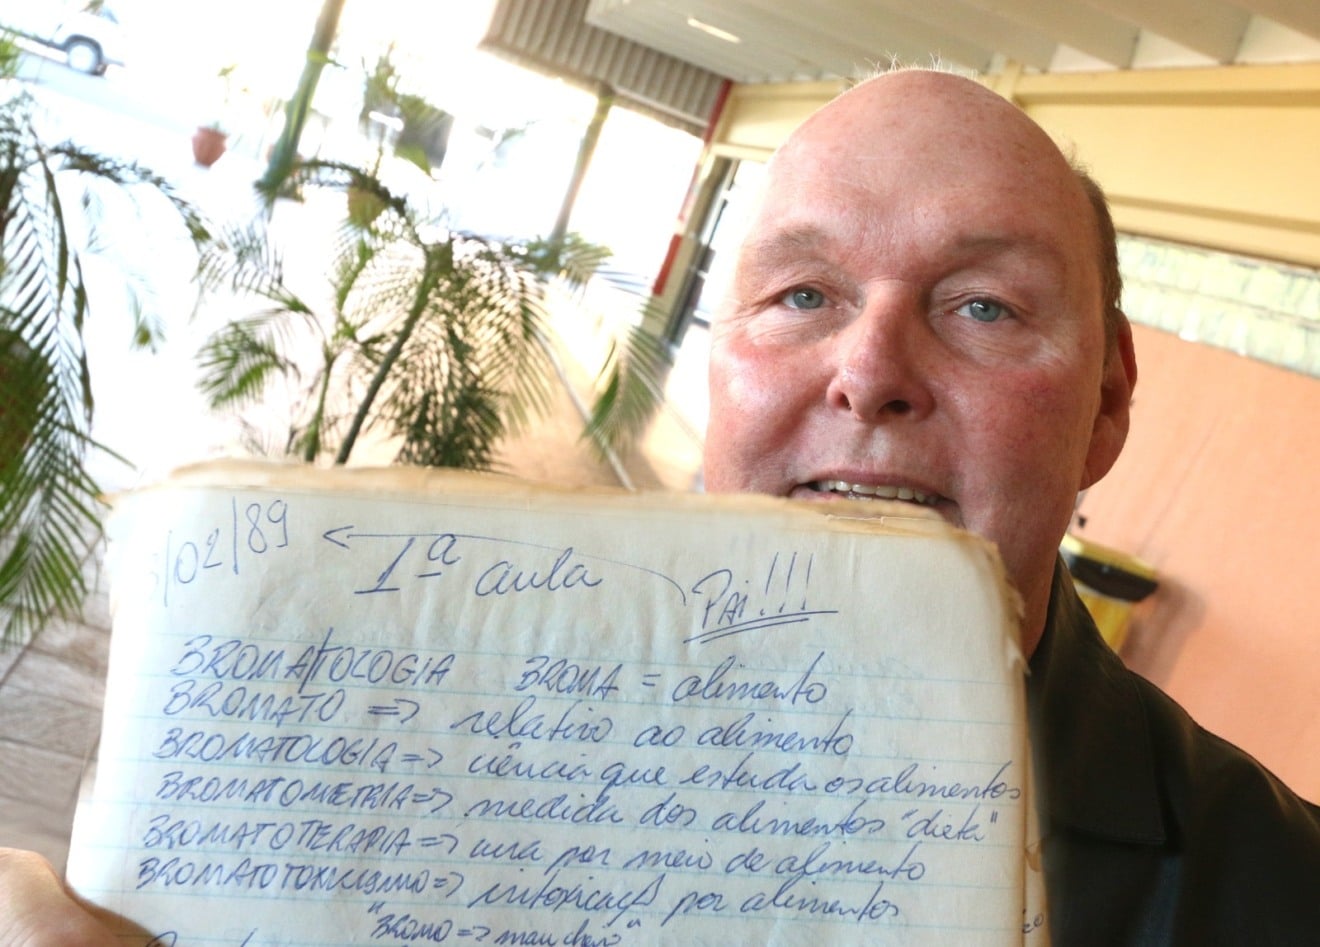 /02/89 ← 1ª aula Pai!!!
BROMATOLOGIA BROMA = alimento
BROMATO => relativo ao alimento
BROMATOLOGIA => ciência que estuda os alimentos
BROMATOMETRIA => medida dos alimentos "dieta"
BROMATOTERAPIA => cura por meio de alimento
BROMATOTOXICISMO => intoxicaçã por alimentos
"BROMO => mau cheiro"